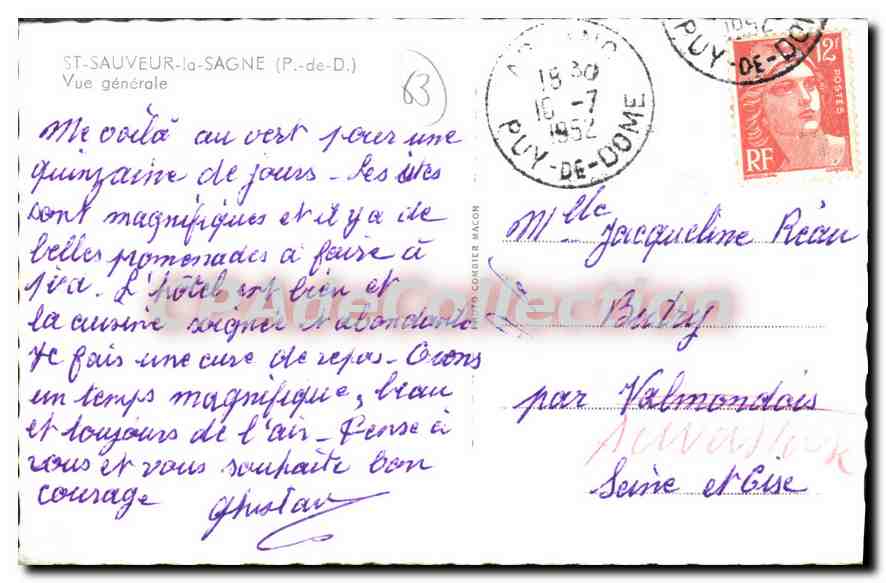 ST-SAUVEUR-la-SAGNE (P.-de-D.)
Vue générale
63
Me voilà au vert pour une
quinzaine de jours - Les sites
sont magnifiques et il y a de
belles promenades à faire à
pied. L'hôtel est bien et
la cuisine soignée et abondante
Je fais une cure de repos - Avons
un temps magnifique, beau
et toujours de l'air - Pense à
vous et vous souhaite bon
courage
18 30
10 -7
1952
PUY-DE-DOME
1952
PUY-DE-DOME
12F
POSTES
RF
PHOTO COMBIER MACON
Mlle Jacqueline Réau
Butry
par Valmondois
Seine et Oise
CPADeCollection